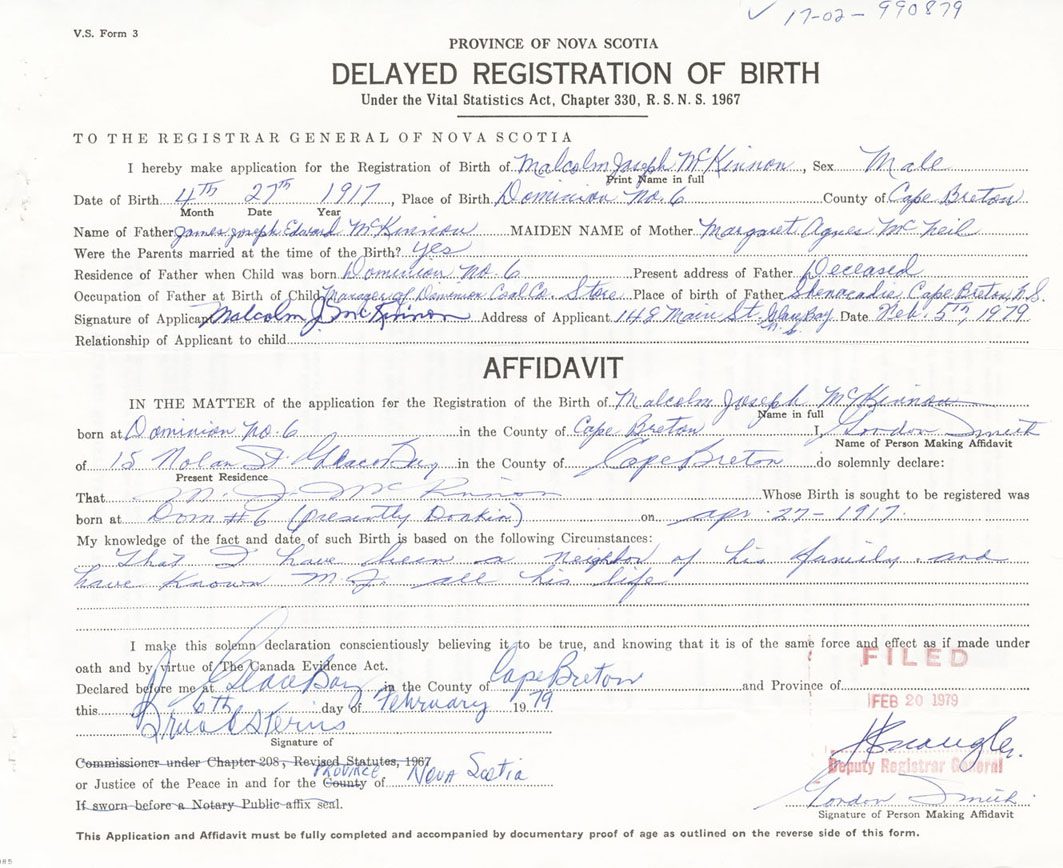 ✓ 17-02-990879
V.S. Form 3
PROVINCE OF NOVA SCOTIA
DELAYED REGISTRATION OF BIRTH
Under the Vital Statistics Act, Chapter 330, R.S.N.S. 1967
TO THE REGISTRAR GENERAL OF NOVA SCOTIA
I hereby make application for the Registration of Birth of Malcolm Joseph McKinnon, Sex Male
Print Name in full
Date of Birth 4TH 27th 1917, Place of Birth Dominion No. 6 County of Cape Breton
Month Date Year
Name of Father James Joseph Edward McKinnon MAIDEN NAME of Mother Margaret Agnes McNeil
Were the Parents married at the time of the Birth? Yes
Residence of Father when Child was born Dominion No. 6 Present address of Father Deceased
Occupation of Father at Birth of Child Manager of Dominion Coal Co. Store Place of birth of Father Shenacadie Cape Breton N.S.
Signature of Applicant Malcolm J. McKinnon Address of Applicant 148 Main St. Glace Bay N.S. Date Feb. 5th, 1979
Relationship of Applicant to child
AFFIDAVIT
IN THE MATTER of the application for the Registration of the Birth of Malcolm Joseph McKinnon
Name in full
born at Dominion No. 6 in the County of Cape Breton I, Gordon Smith
Name of Person Making Affidavit
of 15 Nolan St. Glace Bay in the County of Cape Breton do solemnly declare:
Present Residence
That M. J. McKinnon Whose Birth is sought to be registered was
born at Dom #6 (presently Donkin) on apr. 27-1917.
My knowledge of the fact and date of such Birth is based on the following Circumstances:
That I have been a neighbor of his family and
have known M.J. all his life
I make this solemn declaration conscientiously believing it to be true, and knowing that it is of the same force and effect as if made under
oath and by virtue of The Canada Evidence Act.
FILED
Declared before me at Glace Bay, in the County of Cape Breton and Province of
this 6th day of February 1979
FEB 20 1979
Signature of
Commissioner under Chapter 208, Revised Statutes, 1967
Deputy Registrar General
or Justice of the Peace in and for the County PROVINCE of Nova Scotia
If sworn before a Notary Public affix seal.
Gordon Smith
Signature of Person Making Affidavit
This Application and Affidavit must be fully completed and accompanied by documentary proof of age as outlined on the reverse side of this form.